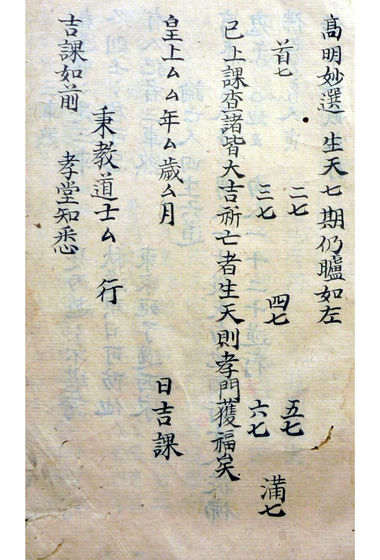 髙明妙選 生天七期仍臚如左
首七 二七 三七 四七 五七 六七 滿七
已上課查諸皆大吉祈亡者生天則孝門獲福矣
皇上厶厶年厶歲厶月 日吉課
秉教道士厶 行
吉課如前 孝堂知悉